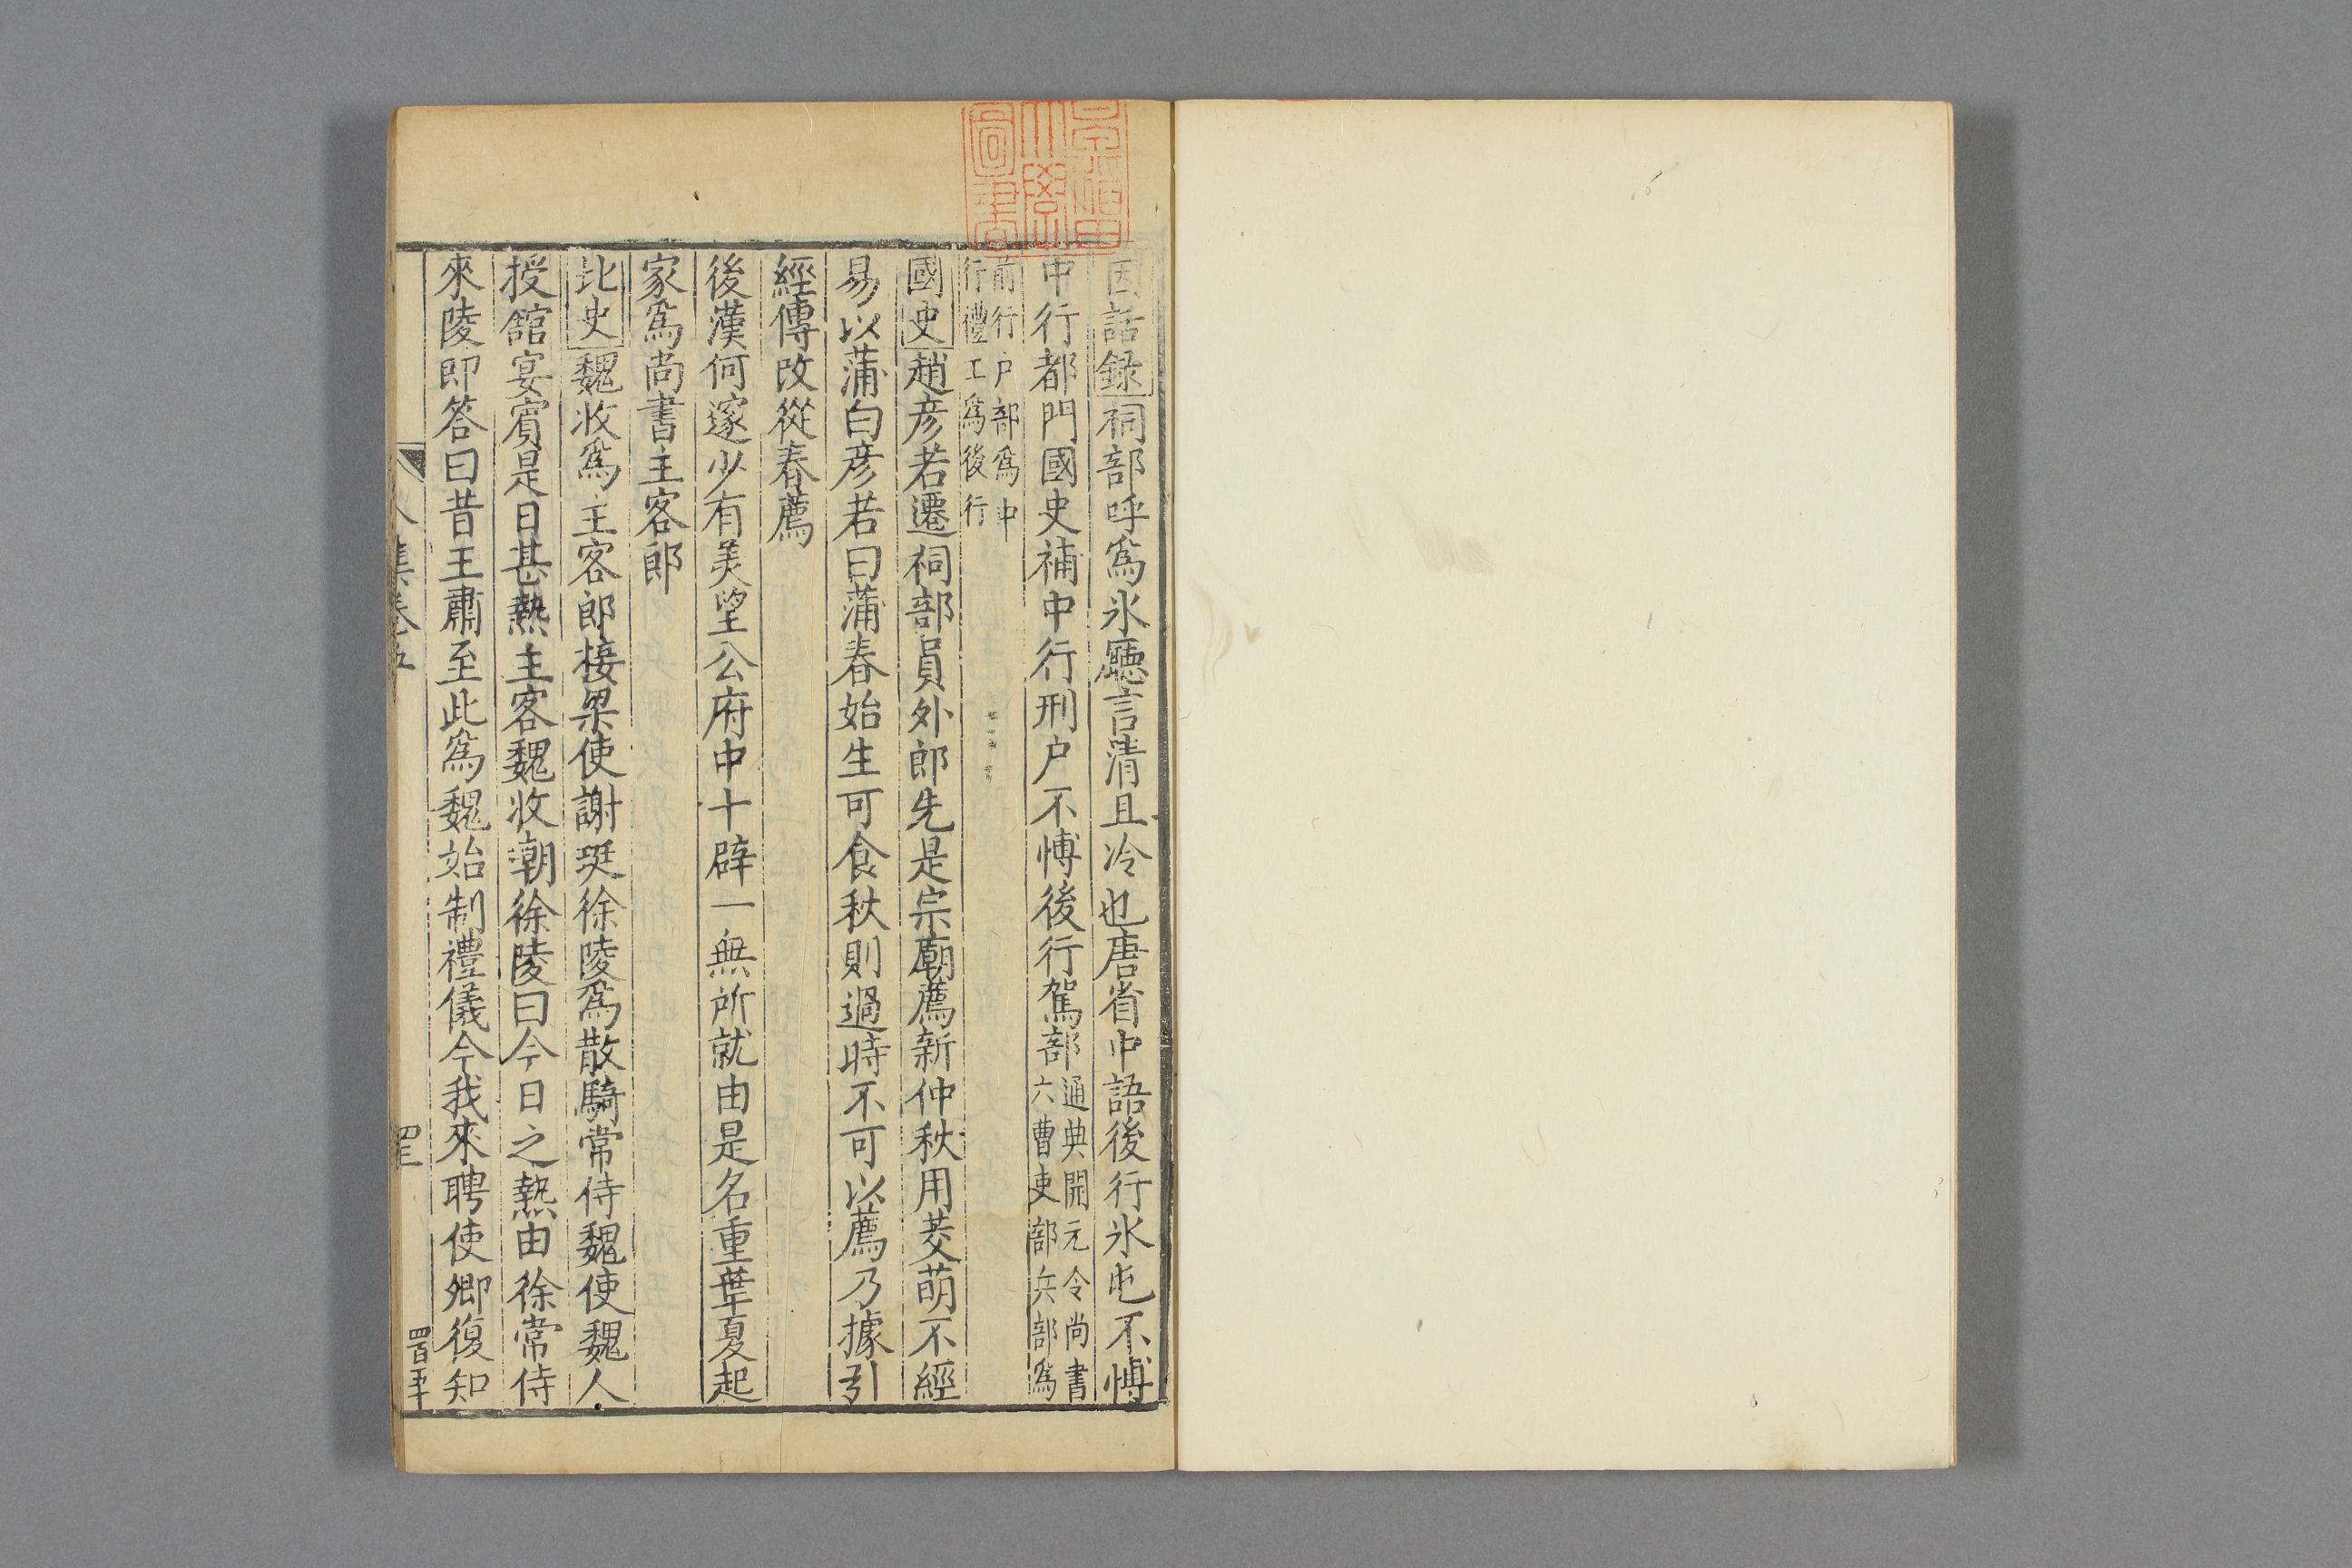 因話録祠部呼爲氷廳言清且冷也唐省中語後行氷屯不愽
中行都門國史補中行刑户不愽後行駕部通典開元令尚書
六曹吏部兵部爲
前行户部爲中
行禮工爲後行
國史趙彦若遷祠部員外郎先是宗廟薦新仲秋用茭萌不經
易以蒲白彦若曰蒲春始生可食秋則過時不可以薦乃據引
經傳改從春薦
後漢何遂少有美望公府中十辟一無所就由是名重華夏起
家爲尚書主客郎
北史魏收爲主客郎接梁使謝珽徐陵爲散騎常侍魏使魏人
授舘宴賔是日甚熱主客魏收嘲徐陵曰今日之熱由徐常侍
來陵即答曰昔王肅至此爲魏始制禮儀今我來聘使卿復知
集卷五